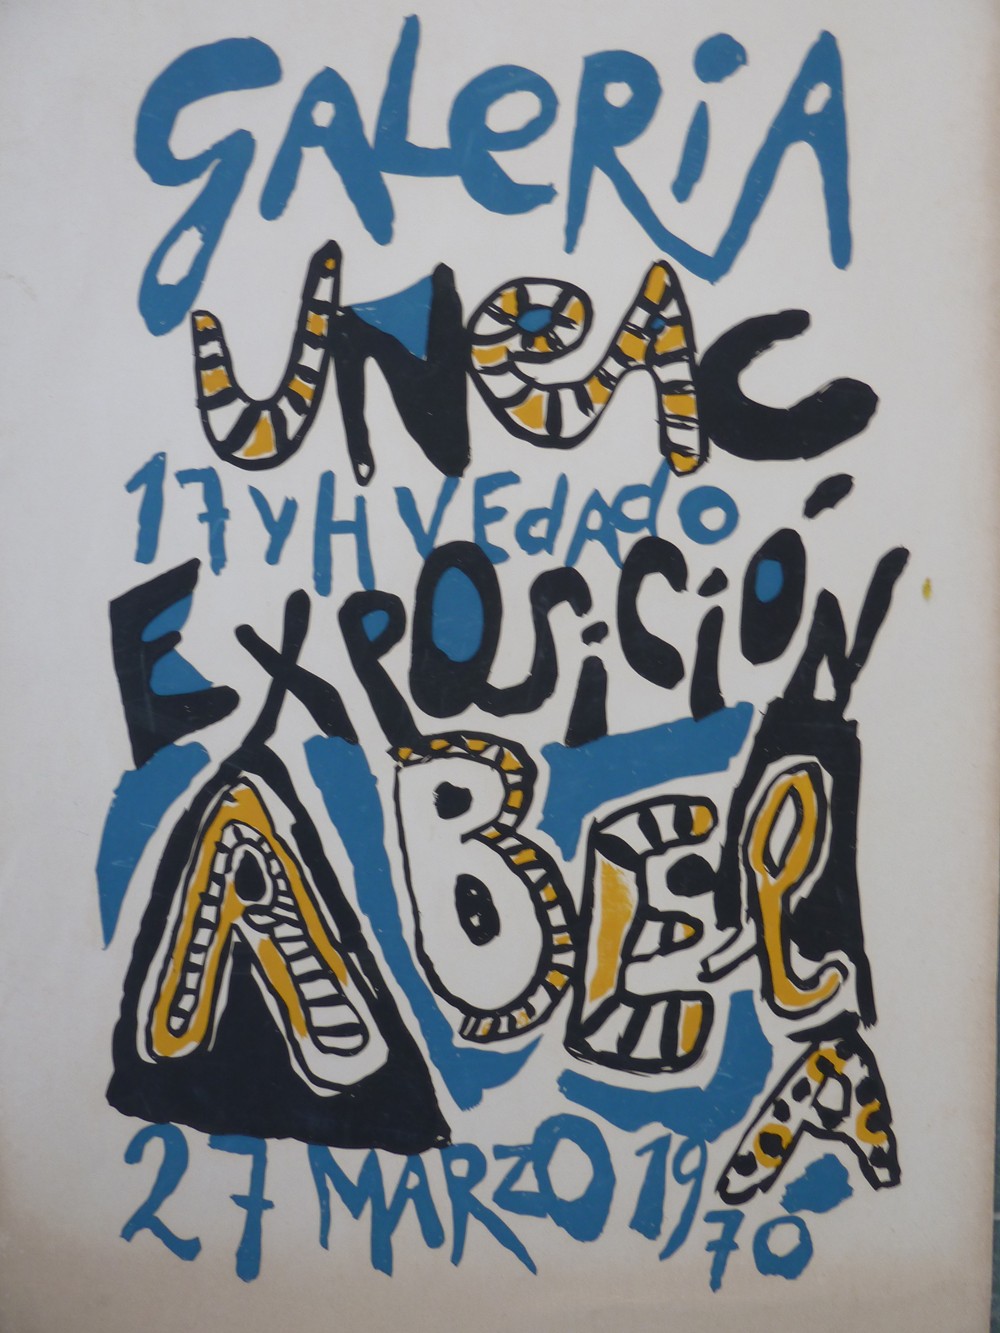 GALERIA
UNEAC
17 y H VEdAdo
EXPOSICIÓN
ABELA
27 MARZO 1970